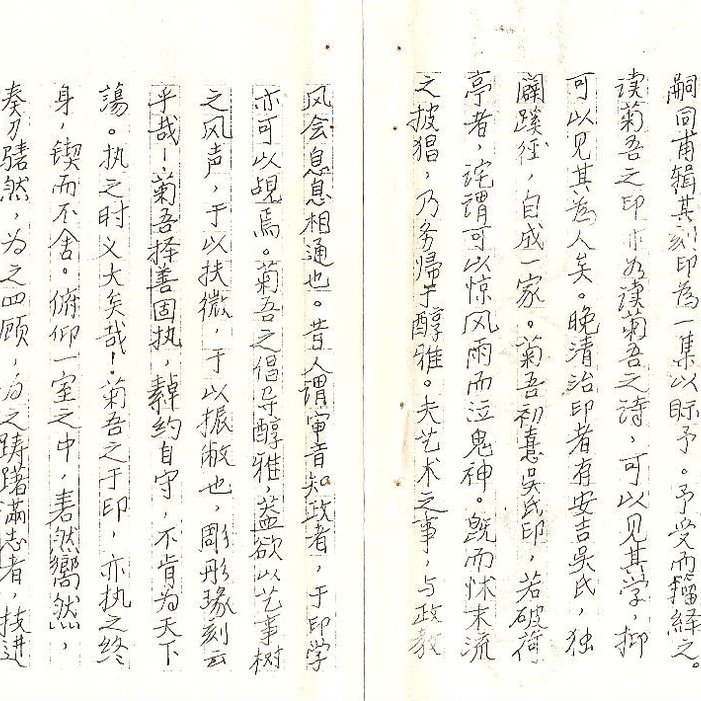 嗣回甫辑其刻印為一集以眎予。予受而籀繹之。
读菊吾之印亦如读菊吾之诗，可以见其学，抑
可以见其為人矣。晚清治印者有安吉吴氏，独
闢蹊径，自成一家。菊吾初憙吴氏印，若破荷
亭者，诧谓可以惊风雨而泣鬼神。既而怵末流
之披猖，乃务歸于醇雅。夫艺术之事，与政教
风会息息相通也。昔人谓审音知政者，于印学
亦可以觇焉。菊吾之倡导醇雅，蓋欲以艺事树
之风声，于以扶微，于以振敝也，彫彤琢刻云
乎哉！菊吾择善固执，綽约自守，不肯为天下
蕩。执之时义大矣哉！菊吾之于印，亦执之终
身，锲而不舍。俯仰一室之中，砉然嚮然，
奏刀騞然，为之四顾，为之踌躇滿志者，技进